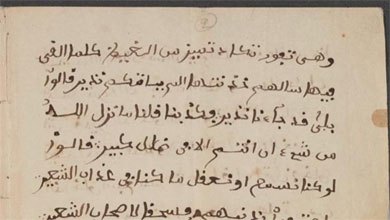 وهي تفور تكاد تميز من الغيظ كلما القي
فيها سالهم خزنتها الم ياتكم نذير قالوا
بلى قد جاءنا نذير فكذبنا قلنا ما نزل الله
من شيء ان انتم الا في ضلل كبير قالوا
لو كنا نسمع او نعقل ما كنا في عذاب الشعير
فسحقا لاصحاب الشعير